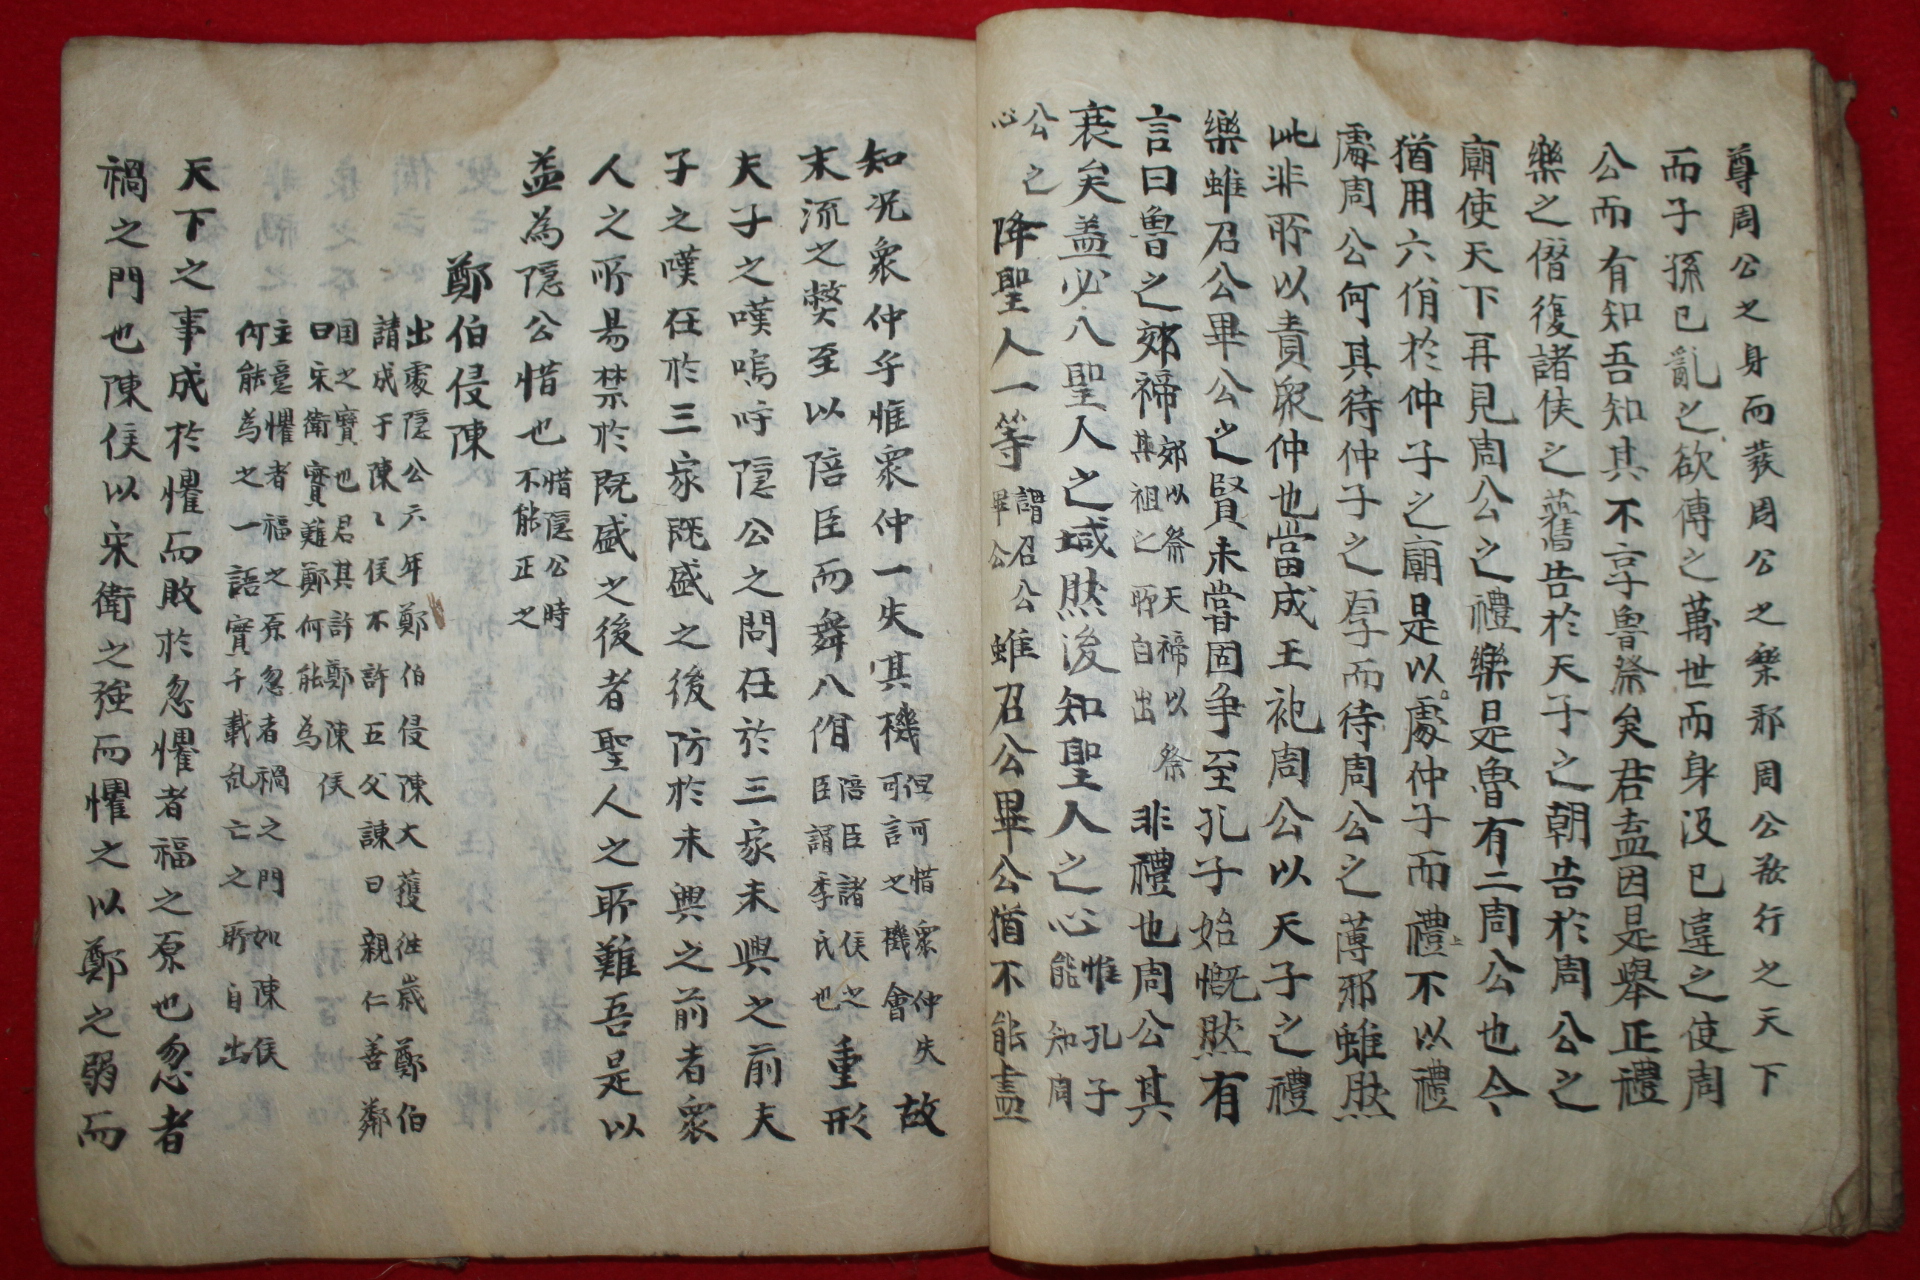 尊周公之身而莪周公之樂邪周公欲行之天下
而子孫已亂之欲傳之萬世而身沒已違之使周
公而有知吾知其不享魯祭矣君盍因是舉正禮
樂之僭復諸侯之舊告於天子之朝告於周公之
廟使天下再見周公之禮樂是魯有二周公也今
猶用六佾於仲子之廟是以處仲子而禮不以禮
處周公何其待仲子之厚而待周公之薄邪雖然
此非所以責衆仲也當成王祀周公以天子之禮
樂雖召公畢公之賢未嘗固爭至孔子始慨然有
言曰魯之郊禘
郊以祭天禘以祭
其祖之所自出
非禮也周公其
衰矣盖必入聖人之域然後知聖人之心
惟孔子
能知周
公之
心
降聖人一等
謂召公
畢公
雖召公畢公猶不能盡
知况衆仲乎惟衆仲一失其機
但可惜衆仲失
可言之機會
故
末流之獘至以陪臣而舞八佾
陪臣諸侯之
臣謂季氏也
重形
夫子之嘆嗚呼隱公之問在於三家未興之前夫
子之嘆在於三家旣盛之後防於未興之前者衆
人之所易禁於旣盛之後者聖人之所難吾是以
益為隱公惜也
惜隱公時
不能正之
鄭伯侵陳
出處隱公六年鄭伯侵陳大獲徃歲鄭伯
請成于陳〻侯不許五父諫曰親仁善鄰
国之寶也君其許鄭陳侯
曰宋衛實難鄭何能為
主意懼者福之原忽者禍之門如陳侯
何能為之一語實千載乱亡之所自出
天下之事成於懼而敗於忽懼者福之原也忽者
禍之門也陳侯以宋衛之強而懼之以鄭之弱而